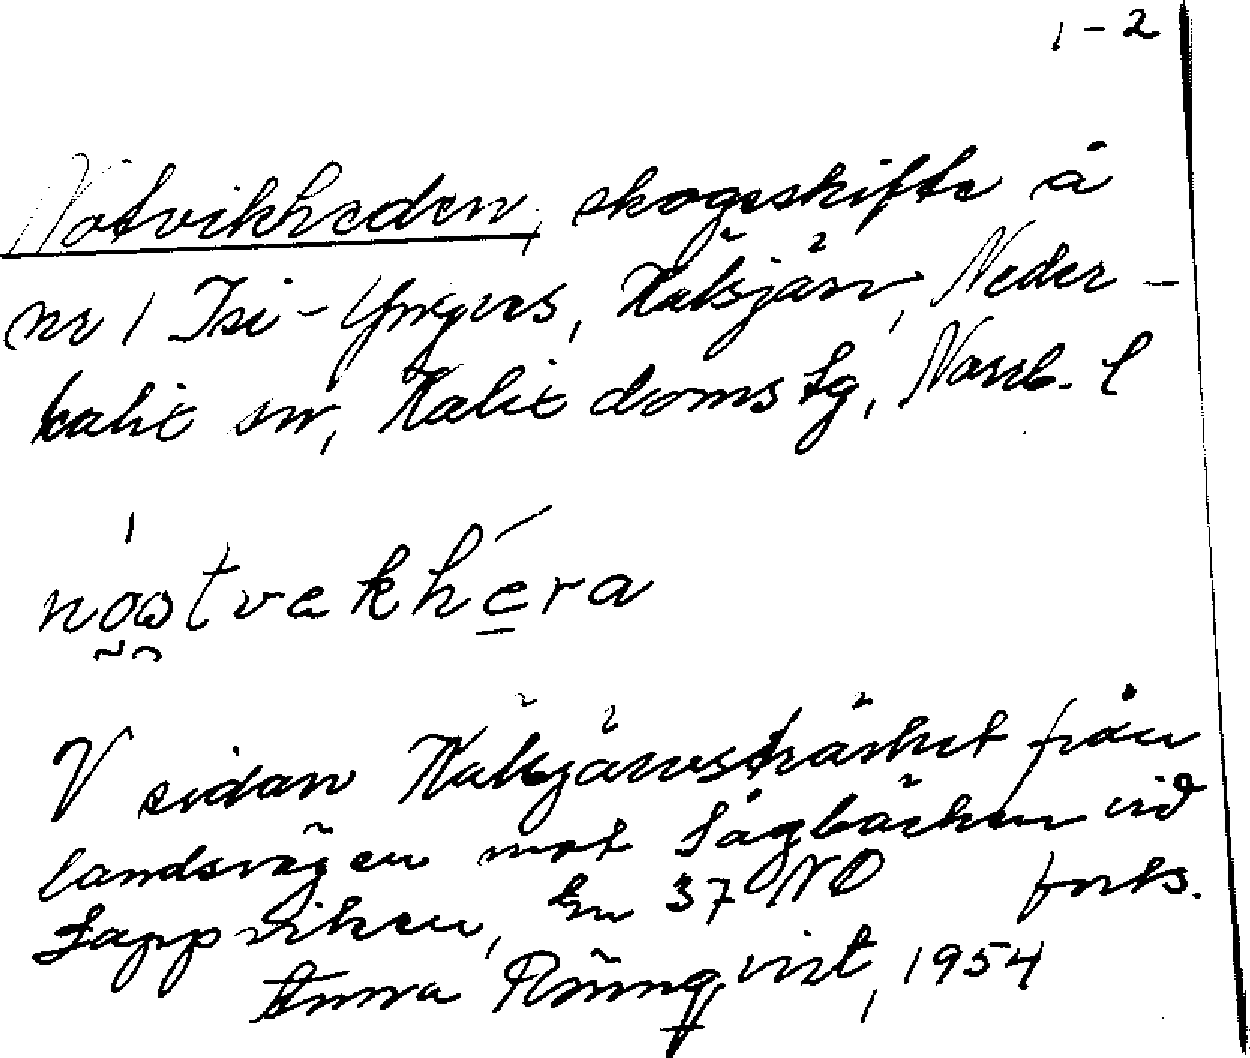 1-2
Notvikheden, skogsskifte å
nr 1 Isi-Yngves, Kälsjärv, Neder-
kalix sn, Kalix doms lg, Norrb. l
nåͅotvekhéra
V sidan Kälsjärvsträsket från
landsvägen mot Sågbäcken vid
Lappviken, En 37 NO forts.
Anna Rönnqvist, 1954